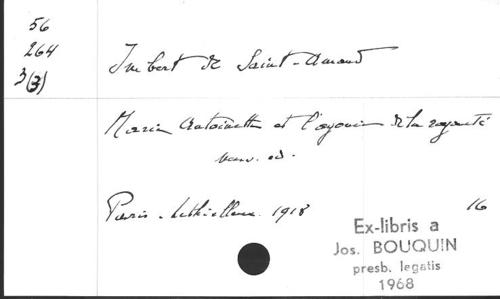 56
264
3(3)
Imbert de Saint-Amand
Marie Antoinette et l'agonie de la royauté
nouv. ed.
Paris - Lethielleux. 1918 16
Ex-libris a
Jos. BOUQUIN
presb. legatis
1968